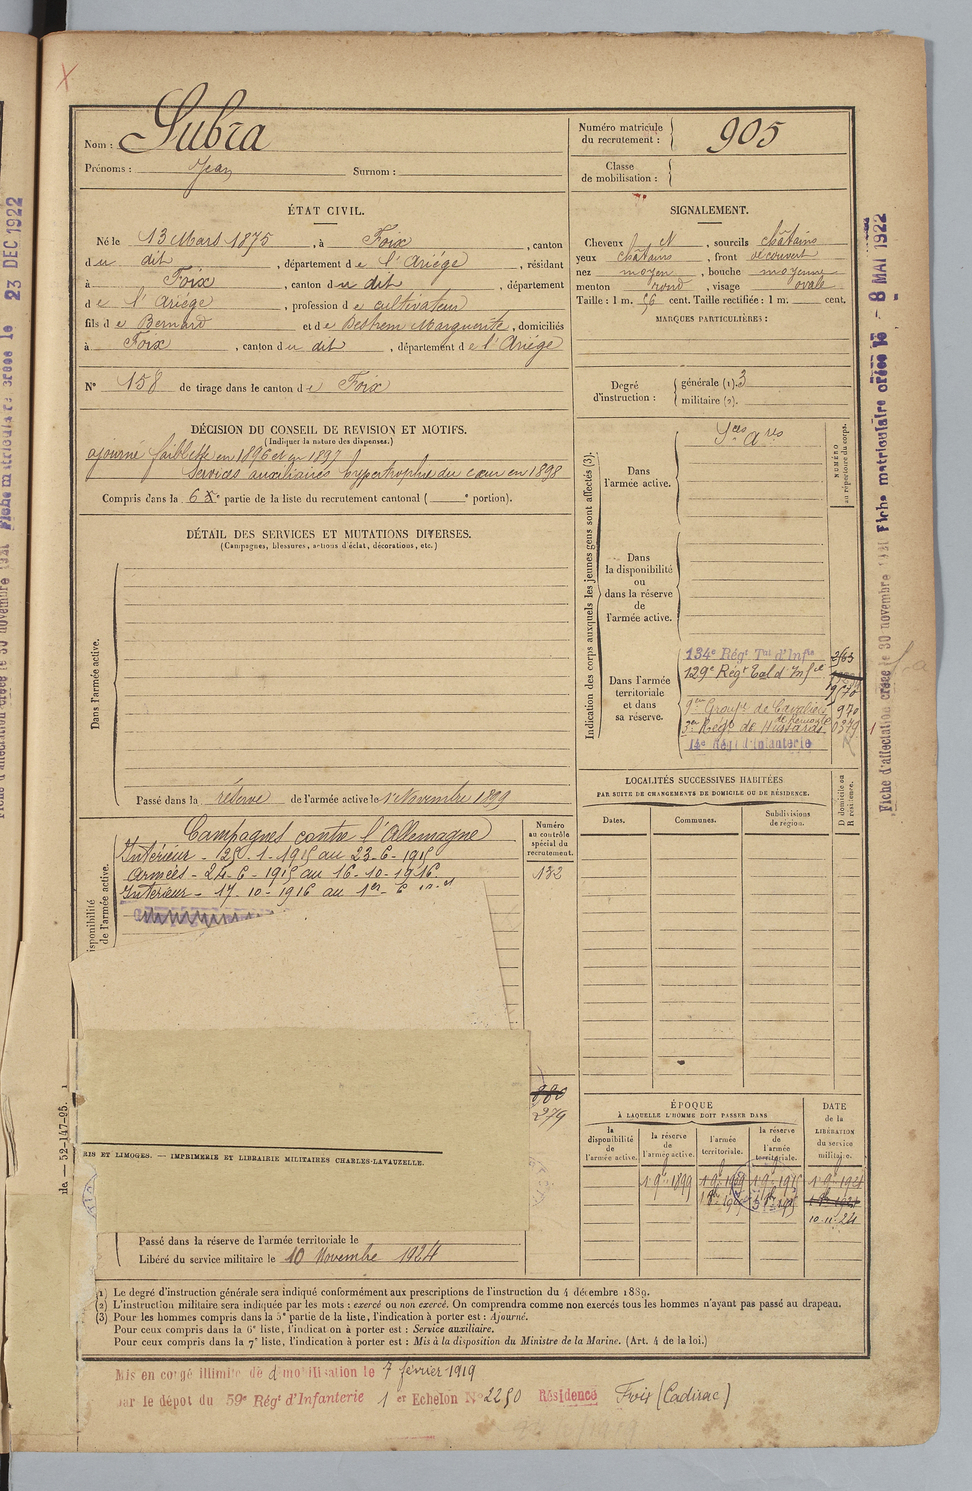 Nom : Subra
Prénoms : Jean Surnom :
Numéro matricule du recrutement : 905
Classe de mobilisation :
ÉTAT CIVIL.
Né le 13 Mars 1875, à Foix, canton
du dit, département de l'Ariége, résidant
à Foix, canton du dit, département
de l'Ariège, profession de cultivateur
fils de Bernard et de Marguerite, domiciliés
à Foix, canton du dit, département de l'Ariège
N° 158 de tirage dans le canton de Foix
SIGNALEMENT.
Cheveux ch N, sourcils châtains
yeux châtains, front découvert
nez moyen, bouche moyenne
menton rond, visage ovale
Taille : 1 m. 56 cent. Taille rectifiée : 1 m. cent.
MARQUES PARTICULIÈRES :
Degré d'instruction : générale (1). 3
militaire (2).
DÉCISION DU CONSEIL DE REVISION ET MOTIFS.
(Indiquer la nature des dispenses.)
ajourné faiblesse en 1896 et en 1897
Services auxiliaires hypertrophie du cœur en 1898
Compris dans la 6e partie de la liste du recrutement cantonal ( e portion).
DÉTAIL DES SERVICES ET MUTATIONS DIVERSES.
(Campagnes, blessures, actions d'éclat, décorations, etc.)
Dans l'armée active.
Passé dans la réserve de l'armée active le 1er Novembre 1899
Indication des corps auxquels les jeunes gens sont affectés (3).
NUMÉRO au répertoire du corps.
Dans l'armée active.
Sces Ares
Dans la disponibilité ou dans la réserve de l'armée active.
Dans l'armée territoriale et dans sa réserve.
134e Régt Tal d'Infie
129e Régt Tal d'Infie
9me Groupe de Cavaliers de Remonte 970
3me Régt de Hussards
14e Régt d'Infanterie
LOCALITÉS SUCCESSIVES HABITÉES
PAR SUITE DE CHANGEMENTS DE DOMICILE OU DE RÉSIDENCE.
D domicile ou R résidence.
Dates. Communes. Subdivisions de région.
Campagnes contre l'Allemagne
Intérieur - 1-1915 au 23-6-1915
Armées - 24-6-1915 au 16-10-1916
Intérieur - 17-10-1916 au 1er-
Numéro au contrôle spécial du recrutement.
132
isponibilité
de l'armée active.
980
279
RIS ET LIMOGES. — IMPRIMERIE ET LIBRAIRIE MILITAIRES CHARLES-LAVAUZELLE.
de — 52-147-95.
Passé dans la réserve de l'armée territoriale le
Libéré du service militaire le 10 Novembre 1924
ÉPOQUE
À LAQUELLE L'HOMME DOIT PASSER DANS
DATE de la LIBÉRATION du service militaire.
la disponibilité de l'armée active.
la réserve de l'armée active.
l'armée territoriale.
la réserve de l'armée territoriale.
1 9bre 1899
10-11-24
(1) Le degré d'instruction générale sera indiqué conformément aux prescriptions de l'instruction du 4 décembre 1889.
(2) L'instruction militaire sera indiquée par les mots : exercé ou non exercé. On comprendra comme non exercés tous les hommes n'ayant pas passé au drapeau.
(3) Pour les hommes compris dans la 5e partie de la liste, l'indication à porter est : Ajourné.
Pour ceux compris dans la 6e liste, l'indication à porter est : Service auxiliaire.
Pour ceux compris dans la 7e liste, l'indication à porter est : Mis à la disposition du Ministre de la Marine. (Art. 4 de la loi.)
Mis en congé illimité de démobilisation le 7 février 1919
par le dépot du 59e Régt d'Infanterie 1er Echelon N° 2250 Résidence Foix (Cadirac)
Fiche matriculaire créée le 8 MAI 1922
Fiche d'affectation créée le 30 novembre 1931
Fiche matriculaire créée le 23 DEC 1922
Fiche d'affectation créée le 30 novembre 1931